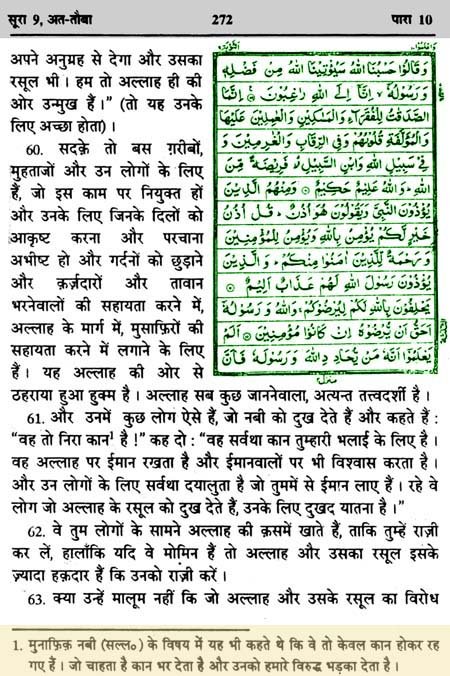 सूरा 9, अत-तौबा 272 पारा 10
अपने अनुग्रह से देगा और उसका
रसूल भी। हम तो अल्लाह ही की
ओर उन्मुख हैं।” (तो यह उनके
लिए अच्छा होता)।
60. सदक़े तो बस ग़रीबों,
मुहताजों और उन लोगों के लिए
हैं, जो इस काम पर नियुक्त हों
और उनके लिए जिनके दिलों को
आकृष्ट करना और परचाना
अभीष्ट हो और गर्दनों को छुड़ाने
और क़र्ज़दारों और तावान
भरनेवालों की सहायता करने में,
अल्लाह के मार्ग में, मुसाफ़िरों की
सहायता करने में लगाने के लिए
हैं। यह अल्लाह की ओर से
وَقَالُوْا حَسْبُنَا اللهُ سَيُؤْتِيْنَا اللهُ مِنْ فَضْلِهٖ
وَرَسُوْلُهٗٓ ۙ اِنَّآ اِلَى اللهِ رٰغِبُوْنَ ۝ اِنَّمَا
الصَّدَقٰتُ لِلْفُقَرَآءِ وَالْمَسٰكِيْنِ وَالْعٰمِلِيْنَ عَلَيْهَا
وَالْمُؤَلَّفَةِ قُلُوْبُهُمْ وَفِي الرِّقَابِ وَالْغٰرِمِيْنَ وَ
فِيْ سَبِيْلِ اللهِ وَابْنِ السَّبِيْلِ ؕ فَرِيْضَةً مِّنَ
اللهِ ؕ وَاللهُ عَلِيْمٌ حَكِيْمٌ ۝ وَمِنْهُمُ الَّذِيْنَ
يُؤْذُوْنَ النَّبِيَّ وَيَقُوْلُوْنَ هُوَ اُذُنٌ ؕ قُلْ اُذُنُ
خَيْرٍ لَّكُمْ يُؤْمِنُ بِاللهِ وَيُؤْمِنُ لِلْمُؤْمِنِيْنَ
وَرَحْمَةٌ لِّلَّذِيْنَ اٰمَنُوْا مِنْكُمْ ؕ وَالَّذِيْنَ
يُؤْذُوْنَ رَسُوْلَ اللهِ لَهُمْ عَذَابٌ اَلِيْمٌ ۝
يَحْلِفُوْنَ بِاللهِ لَكُمْ لِيُرْضُوْكُمْ ۚ وَاللهُ وَرَسُوْلُهٗٓ
اَحَقُّ اَنْ يُّرْضُوْهُ اِنْ كَانُوْا مُؤْمِنِيْنَ ۝ اَلَمْ
يَعْلَمُوْٓا اَنَّهٗ مَنْ يُّحَادِدِ اللهَ وَرَسُوْلَهٗ فَاَنَّ
ठहराया हुआ हुक्म है। अल्लाह सब कुछ जाननेवाला, अत्यन्त तत्त्वदर्शी है।
61. और उनमें कुछ लोग ऐसे हैं, जो नबी को दुख देते हैं और कहते हैं :
“वह तो निरा कान¹ है !” कह दो : “वह सर्वथा कान तुम्हारी भलाई के लिए है।
वह अल्लाह पर ईमान रखता है और ईमानवालों पर भी विश्वास करता है।
और उन लोगों के लिए सर्वथा दयालुता है जो तुममें से ईमान लाए हैं। रहे वे
लोग जो अल्लाह के रसूल को दुख देते हैं, उनके लिए दुखद यातना है।”
62. वे तुम लोगों के सामने अल्लाह की क़समें खाते हैं, ताकि तुम्हें राज़ी
कर लें, हालाँकि यदि वे मोमिन हैं तो अल्लाह और उसका रसूल इसके
ज़्यादा हक़दार हैं कि उनको राज़ी करें।
63. क्या उन्हें मालूम नहीं कि जो अल्लाह और उसके रसूल का विरोध
1. मुनाफ़िक़ नबी (सल्ल०) के विषय में यह भी कहते थे कि वे तो केवल कान होकर रह
गए हैं। जो चाहता है कान भर देता है और उनको हमारे विरुद्ध भड़का देता है।